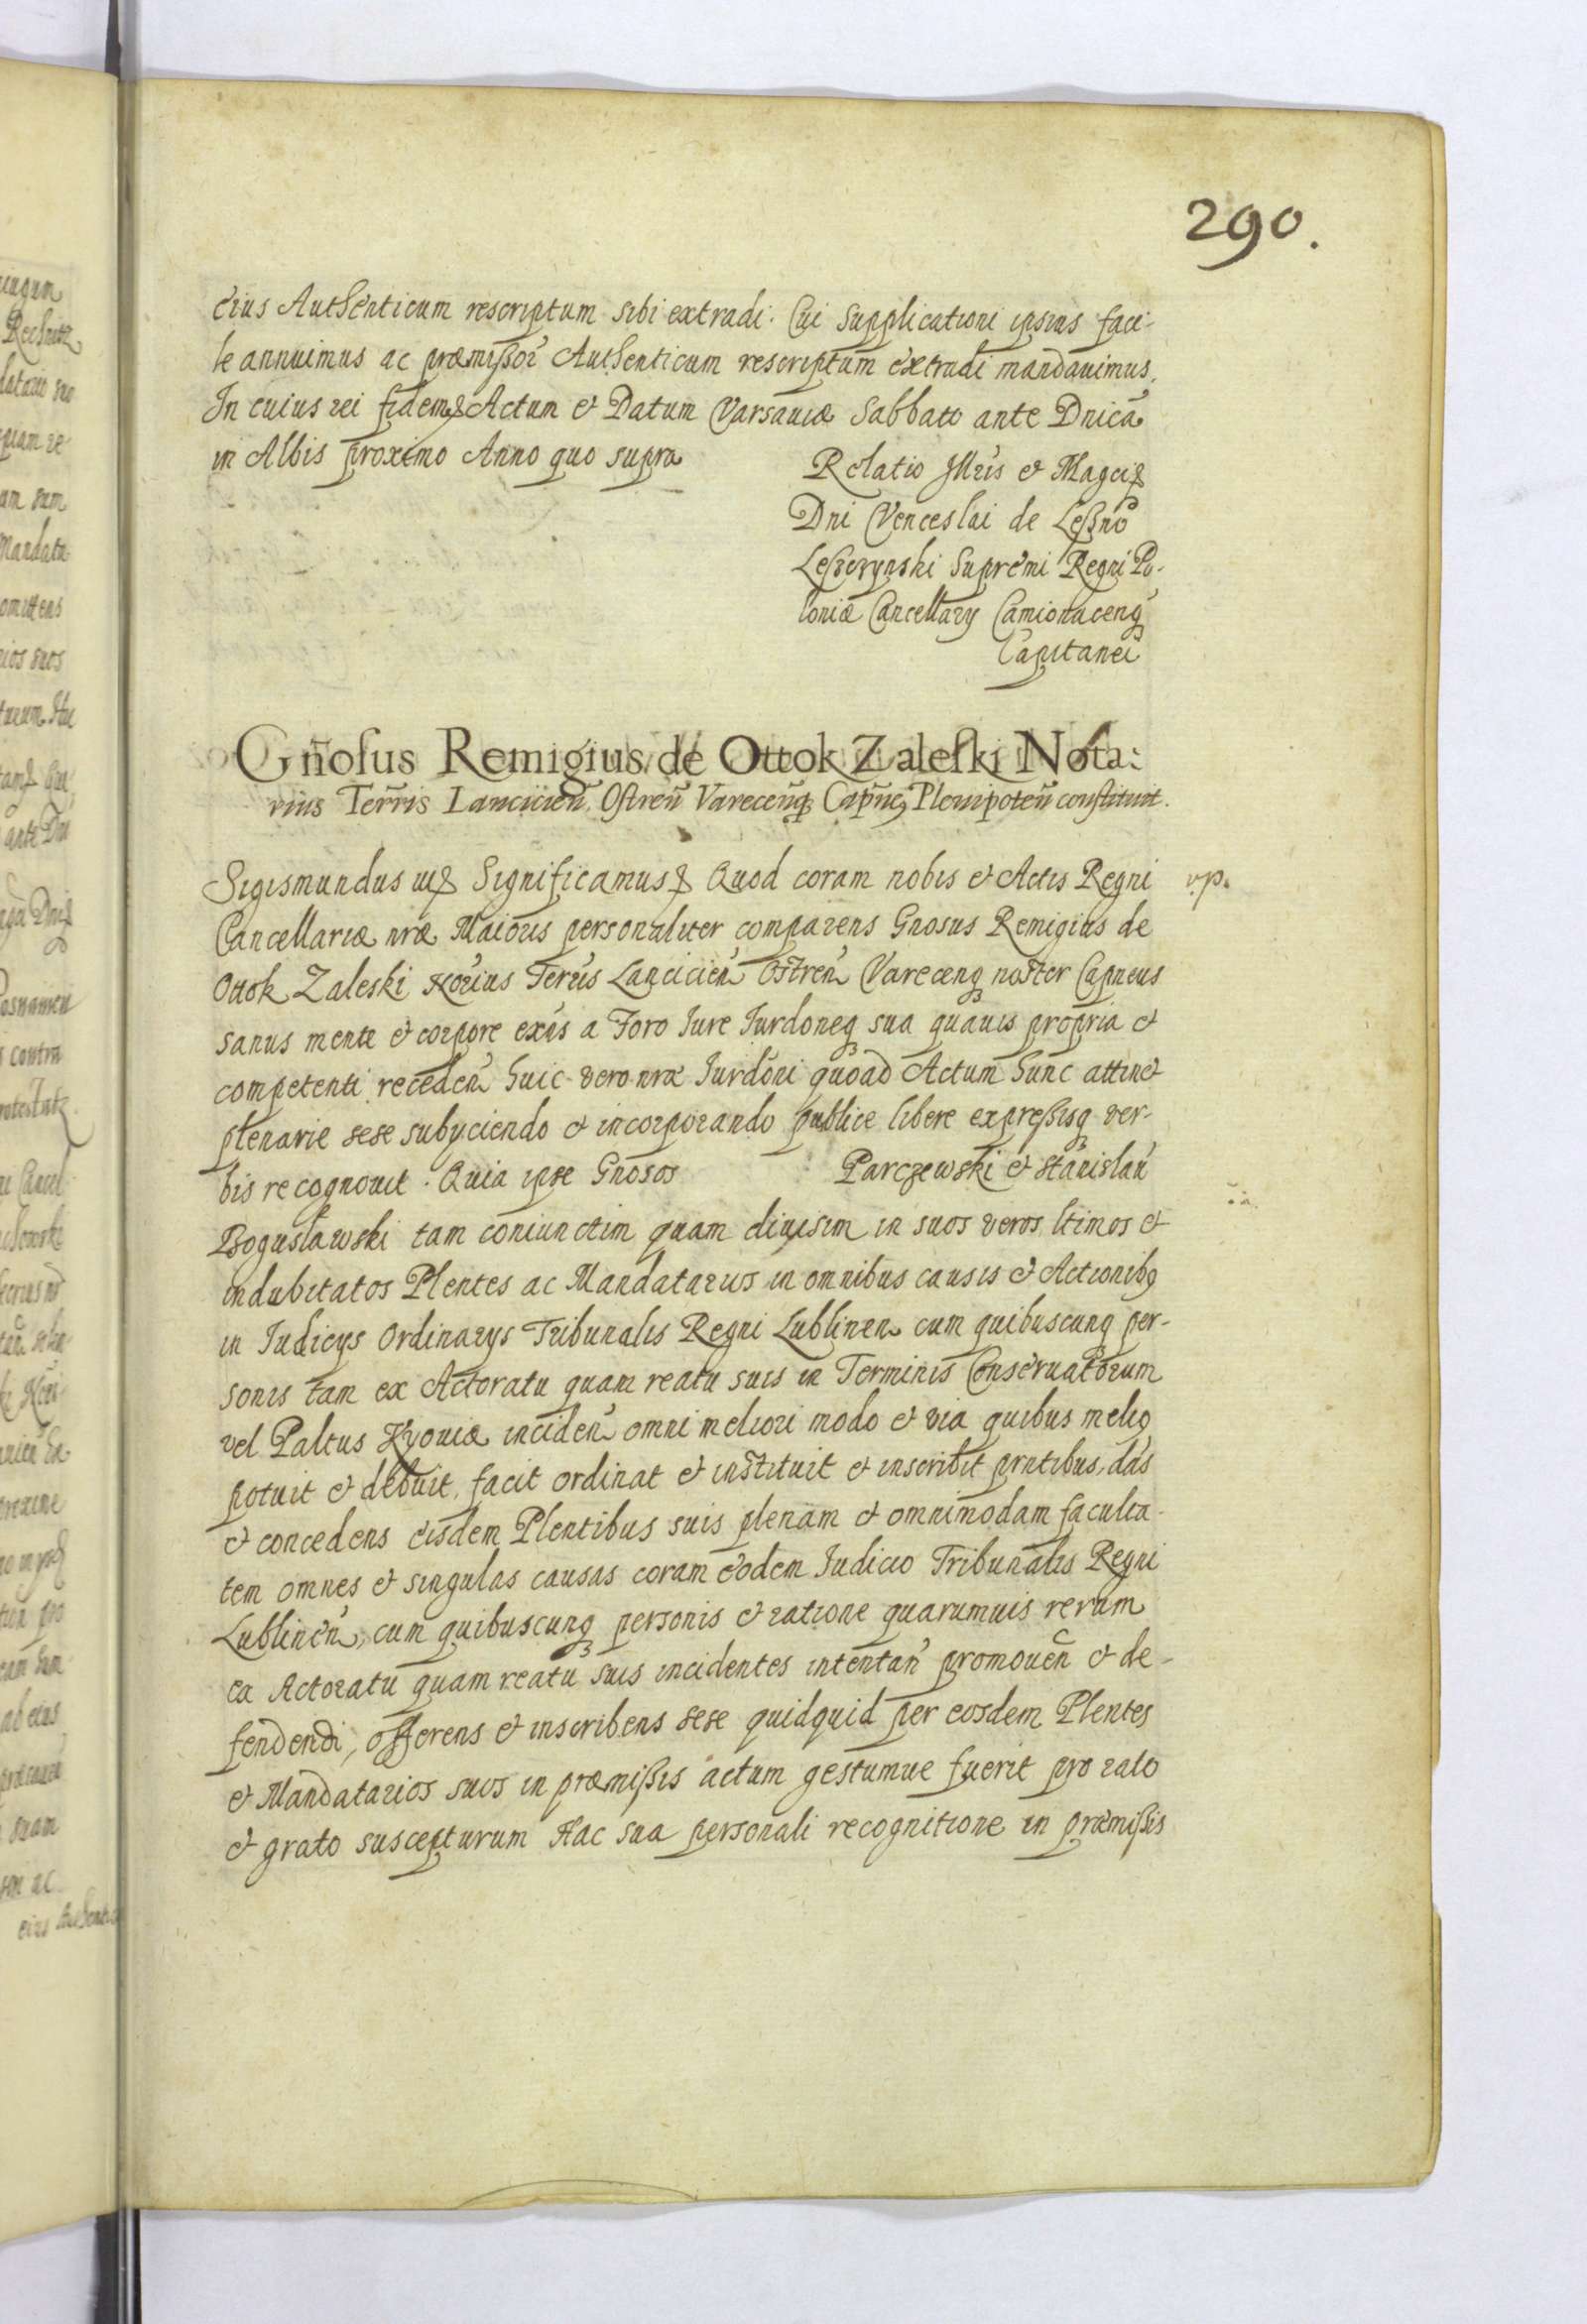 290.
eius Authenticum rescriptum sibi extradi. Cui Supplicationi ipsius faci-
le annuimus ac præmißor Authenticum rescriptum extradi mandauimus.
In cuius rei fidem Actum et Datum Varsauiæ Sabbato ante Dnicā
in Albis proximo Anno quo supra
Relatio Illris et Magci
Dni Venceslai de Leßno
Leßczynski Supremi Regni Po-
loniæ Cancellary Camionacenq
Capitanei
Gn̄osus Remigius de Ottok Zaleski Nota:
rius Terris Lancicien̄. Ostren̄ Varecen̄q Cap̄nẽ Plenipoten̄ constituit.
Sigismundus III Significamus Quod coram nobis et Actis Regni
vp.
Cancellariæ nræ Maioris personaliter comparens Gnosus Remigius de
Ottok Zaleski Norius Terris Lancicień Ostreń Varecenq noster Capneus
sanus mente et corpore exñs a Foro Jure Jurdoneq sua quauis propria et
competenti recedeń huic vero nræ Jurdoni quoad Actum hunc attinet
plenarie sese subyciendo et incorporando publice libere expreßisq ver-
bis recognouit. Quia ipse Gnosos Parczewski et Stanislaū
Bogusławski tam coniunctim quam diuisim in suos veros ltimos et
indubitatos Plentes ac Mandatarios in omnibus causis et Actionibq
in Judicys Ordinarys Tribunalis Regni Lublinen cum quibuscunq per-
sonis tam ex Actoratu quam reatu suis in Terminis Conseruatorum
vel Paltus Kyouiæ incideń omni meliori modo et via quibus melio
potuit et debuit, facit ordinat et instituit et inscribit prntibus, dās
et concedens eisdem Plentibus suis plenam et omnimodam faculta-
tem omnes et singulas causas coram eodem Judicio Tribunalis Regni
Lublineń, cum quibuscunq personis et ratione quarumuis rerum
ex Actoratu quam reatu suis incidentes intentań promoueń et de-
fendendi, offerens et inscribens sese quidquid per eosdem Plentes
et Mandatarios suos in præmißis actum gestumue fuerit pro rato
et grato suscepturum Hac sua personali recognitione in præmißis